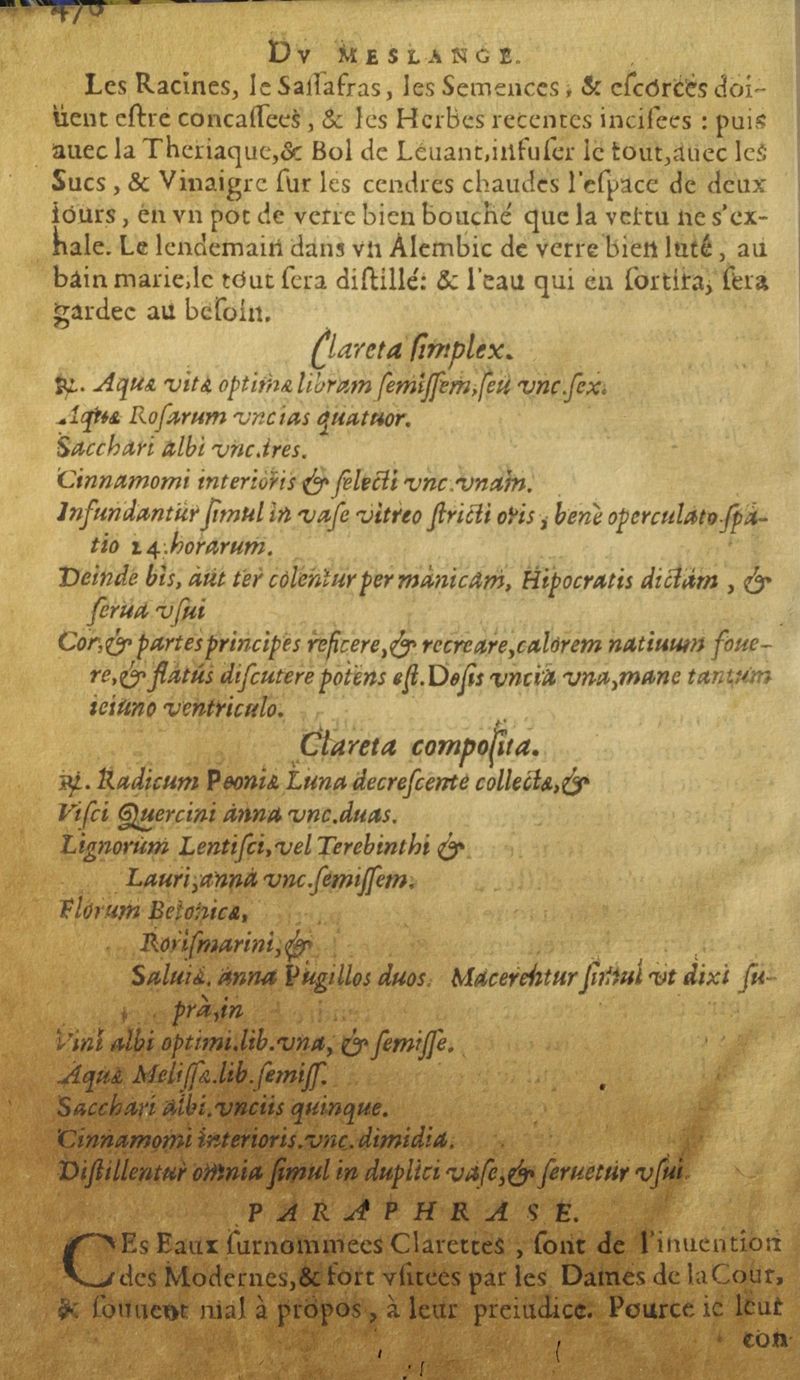 478
DV MESLANGE.
Les Racines, le Saſſafras, les Semences, & eſcorcés doi-
uent eſtre concaſſeés, & les Herbes recentes inciſees : puis
auec la Theriaque,& Bol de Leuant,infuſer le tout,auec les
Sucs, & Vinaigre ſur les cendres chaudes l'eſpace de deux
iours, en vn pot de verre bien bouché que la vertu ne s'ex-
hale. Le lendemain dans vn Alembic de verre bien luté, au
bain marie,le tout ſera diſtillé: & l'eau qui en ſortira, ſera
gardee au beſoin.
Clareta ſimplex.
℞. Aquæ vitæ optimæ libram ſemiſſem,ſeu vnc.ſex.
Aquæ Roſarum vncias quatuor.
Sacchari albi vnc.tres.
Cinnamomi interioris & ſelecti vnc.vnam.
Infundantur ſimul in vaſe vitreo ſtricti oris, bene operculato ſpa-
tio 24.horarum.
Deinde bis, aut ter colentur per manicam, Hipocratis dictam, &
ſerua vſui
Cor,& partes principes reficere,& recreare,calorem natiuum foue-
re,& flatus diſcutere potens eſt.Doſis vncia vna,mane tantum
ieiuno ventriculo.
Clareta compoſita.
℞. Radicum Peoniæ Luna decreſcente collectæ,&
Viſci Quercini anna vnc.duas.
Lignorum Lentiſci,vel Terebinthi &
Lauri,anna vnc.ſemiſſem.
Florum Betonicæ,
Roriſmarini,&
Saluiæ, anna Pugillos duos. Macerentur ſimul vt dixi ſu-
pra,in
Vini albi optimi.lib.vna, & ſemiſſe.
Aquæ Meliſſæ.lib.ſemiſſ.
Sacchari albi.vnciis quinque.
Cinnamomi interioris.vnc.dimidia.
Diſtillentur omnia ſimul in duplici vaſe,& ſeruetur vſui.
PARAPHRASE.
CEs Eaux ſurnommees Clarettes, ſont de l'inuention
des Modernes,& fort vſitees par les Dames de la Cour,
& ſouuent mal à propos, à leur preiudice. Pource ie leur
con